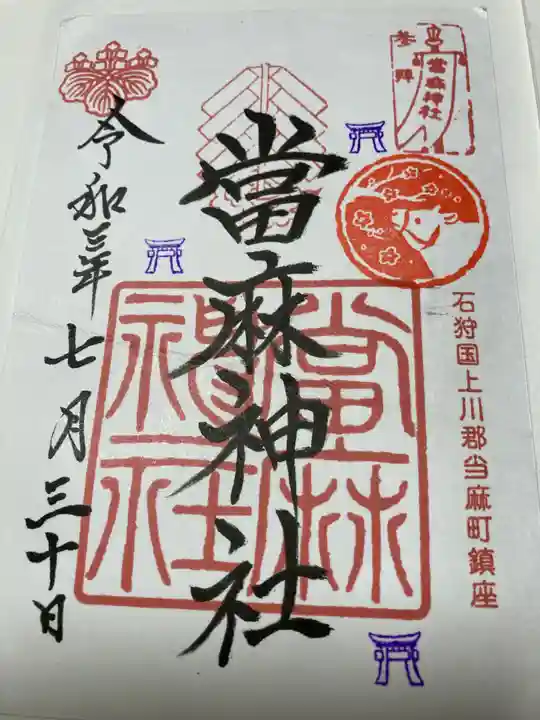 参拝
當麻神社
石狩国上川郡当麻町鎮座
當麻神社
當麻神社
令和三年七月三十日